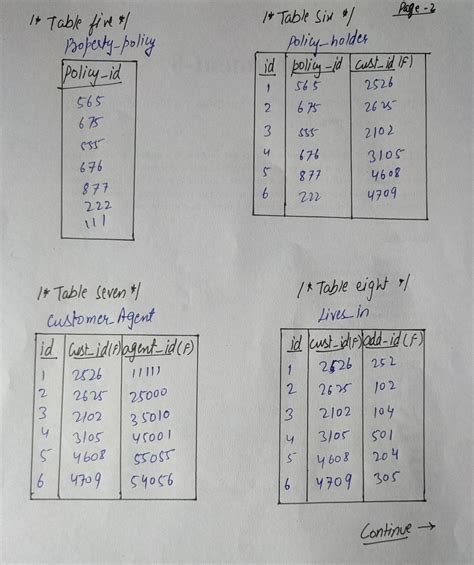 Page-2
/* Table five */
Property_policy
policy_id
565
675
555
676
877
222
111
/* Table six */
policy_holder
id policy_id cust_id(F)
1 565 2526
2 675 2625
3 555 2102
4 676 3105
5 877 4608
6 222 4709
/* Table seven */
Customer_Agent
id Cust_id(F) agent_id(F)
1 2526 11111
2 2625 25000
3 2102 35010
4 3105 45001
5 4608 55055
6 4709 54056
/* Table eight */
Lives_in
id cust_id(F) add-id(F)
1 2526 252
2 2625 102
3 2102 104
4 3105 501
5 4608 204
6 4709 305
Continue →